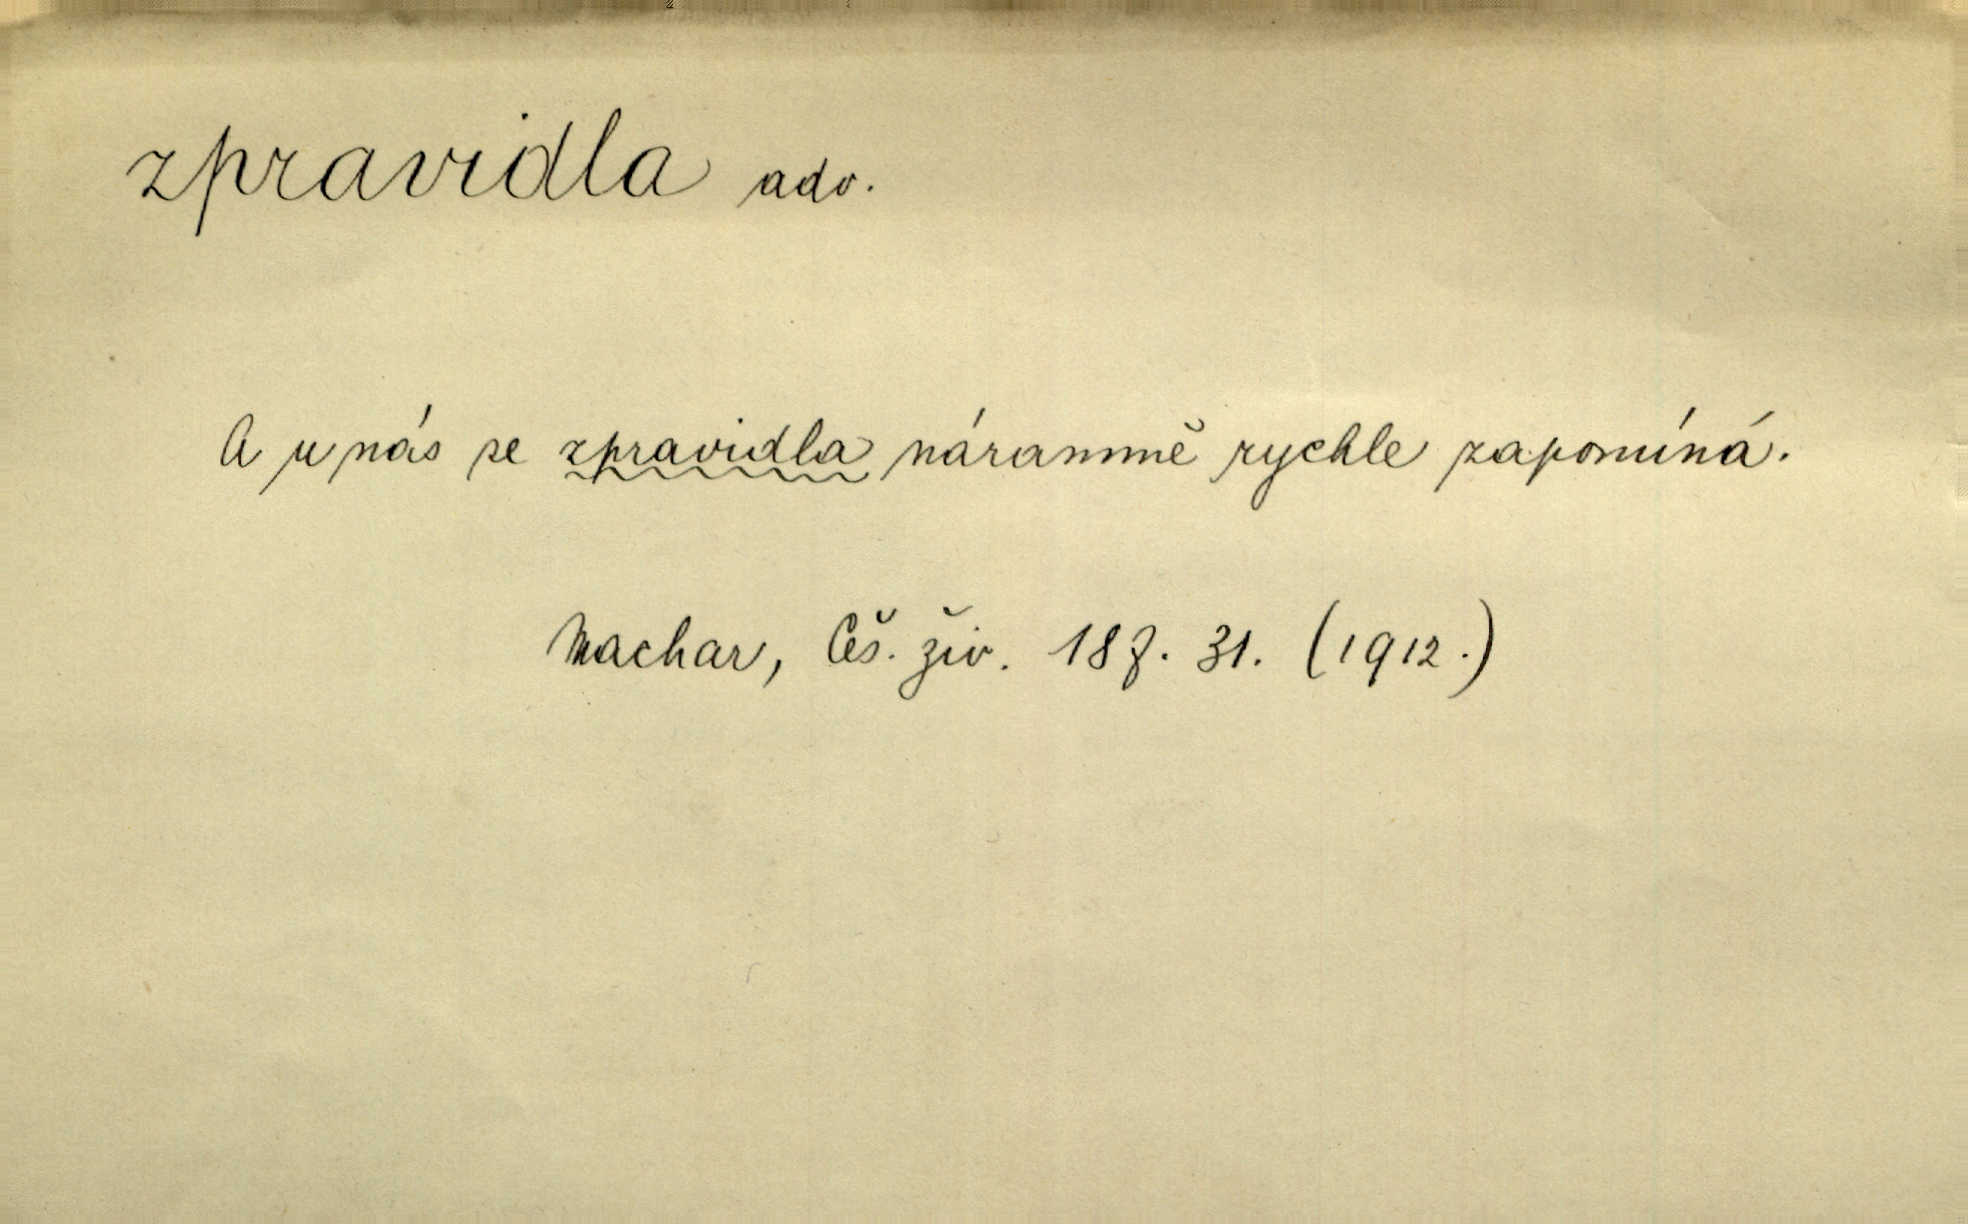 zpravidla adv.
A u nás se zpravidla náramně rychle zapomíná.
Machar, Čes. živ. 187. 31. (1912.)